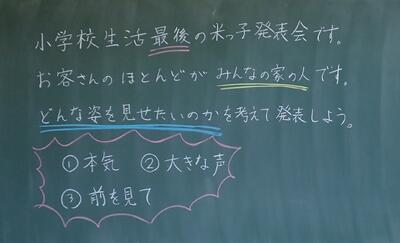 小学校生活最後の米っ子発表会です。
お客さんのほとんどがみんなの家の人です。
どんな姿を見せたいのかを考えて発表しよう。
①本気 ②大きな声
③前を見て